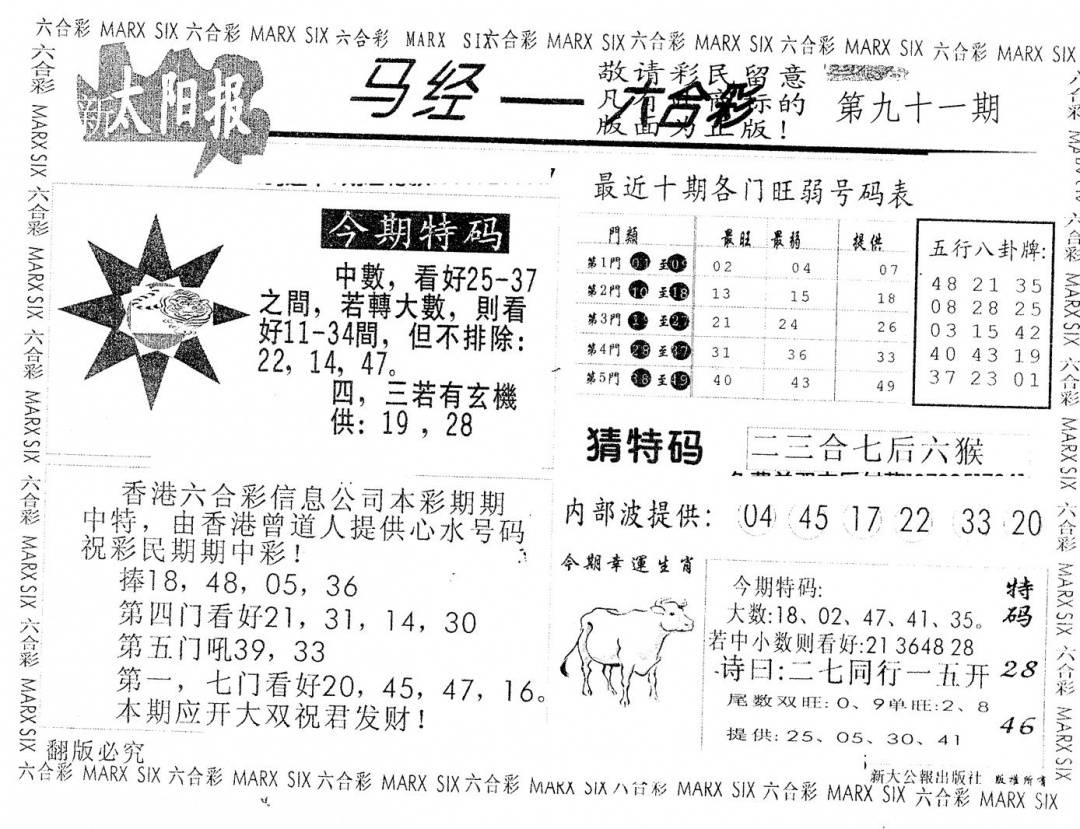 六合彩 MARX SIX 六合彩 MARX SIX 六合彩 MARX SIX 六合彩 MARX SIX 六合彩 MARX SIX 六合彩 MARX SIX 六合彩 MARX SIX
六合彩 MARX SIX 六合彩 MARX SIX 六合彩 MARX SIX 六合彩 MARX SIX 六合彩 MARX SIX
新太阳报
马经一六合彩
敬请彩民留意
凡有 商标的
版面为正版!
第九十一期
今期特码
中數，看好25-37
之間，若轉大數，則看
好11-34間，但不排除:
22，14，47。
四，三若有玄機
供: 19 ，28
最近十期各门旺弱号码表
門類 最旺 最弱 提供
第1門 01 至 09 02 04 07
第2門 10 至 18 13 15 18
第3門 19 至 27 21 24 26
第4門 28 至 37 31 36 33
第5門 38 至 49 40 43 49
五行八卦牌:
48 21 35
08 28 25
03 15 42
40 43 19
37 23 01
猜特码
二三合七后六猴
内部波提供: 04 45 17 22 33 20
香港六合彩信息公司本彩期期
中特，由香港曾道人提供心水号码
祝彩民期期中彩!
捧18，48，05，36
第四门看好21，31，14，30
第五门吼39，33
第一，七门看好20，45，47，16。
本期应开大双祝君发财!
翻版必究
今期幸運生肖
今期特码:
大数:18、02、47、41、35。
若中小数则看好:21 3648 28
诗曰:二七同行一五开
尾数双旺: 0、9单旺:2、8
提供: 25、05、30、41
特
码
28
46
新大公報出版社 版權所有
六合彩 MARX SIX 六合彩 MARX SIX 六合彩 MARX SIX 六合彩 MARX SIX 六合彩 MARX SIX 六合彩 MARX SIX 六合彩 MARX SIX